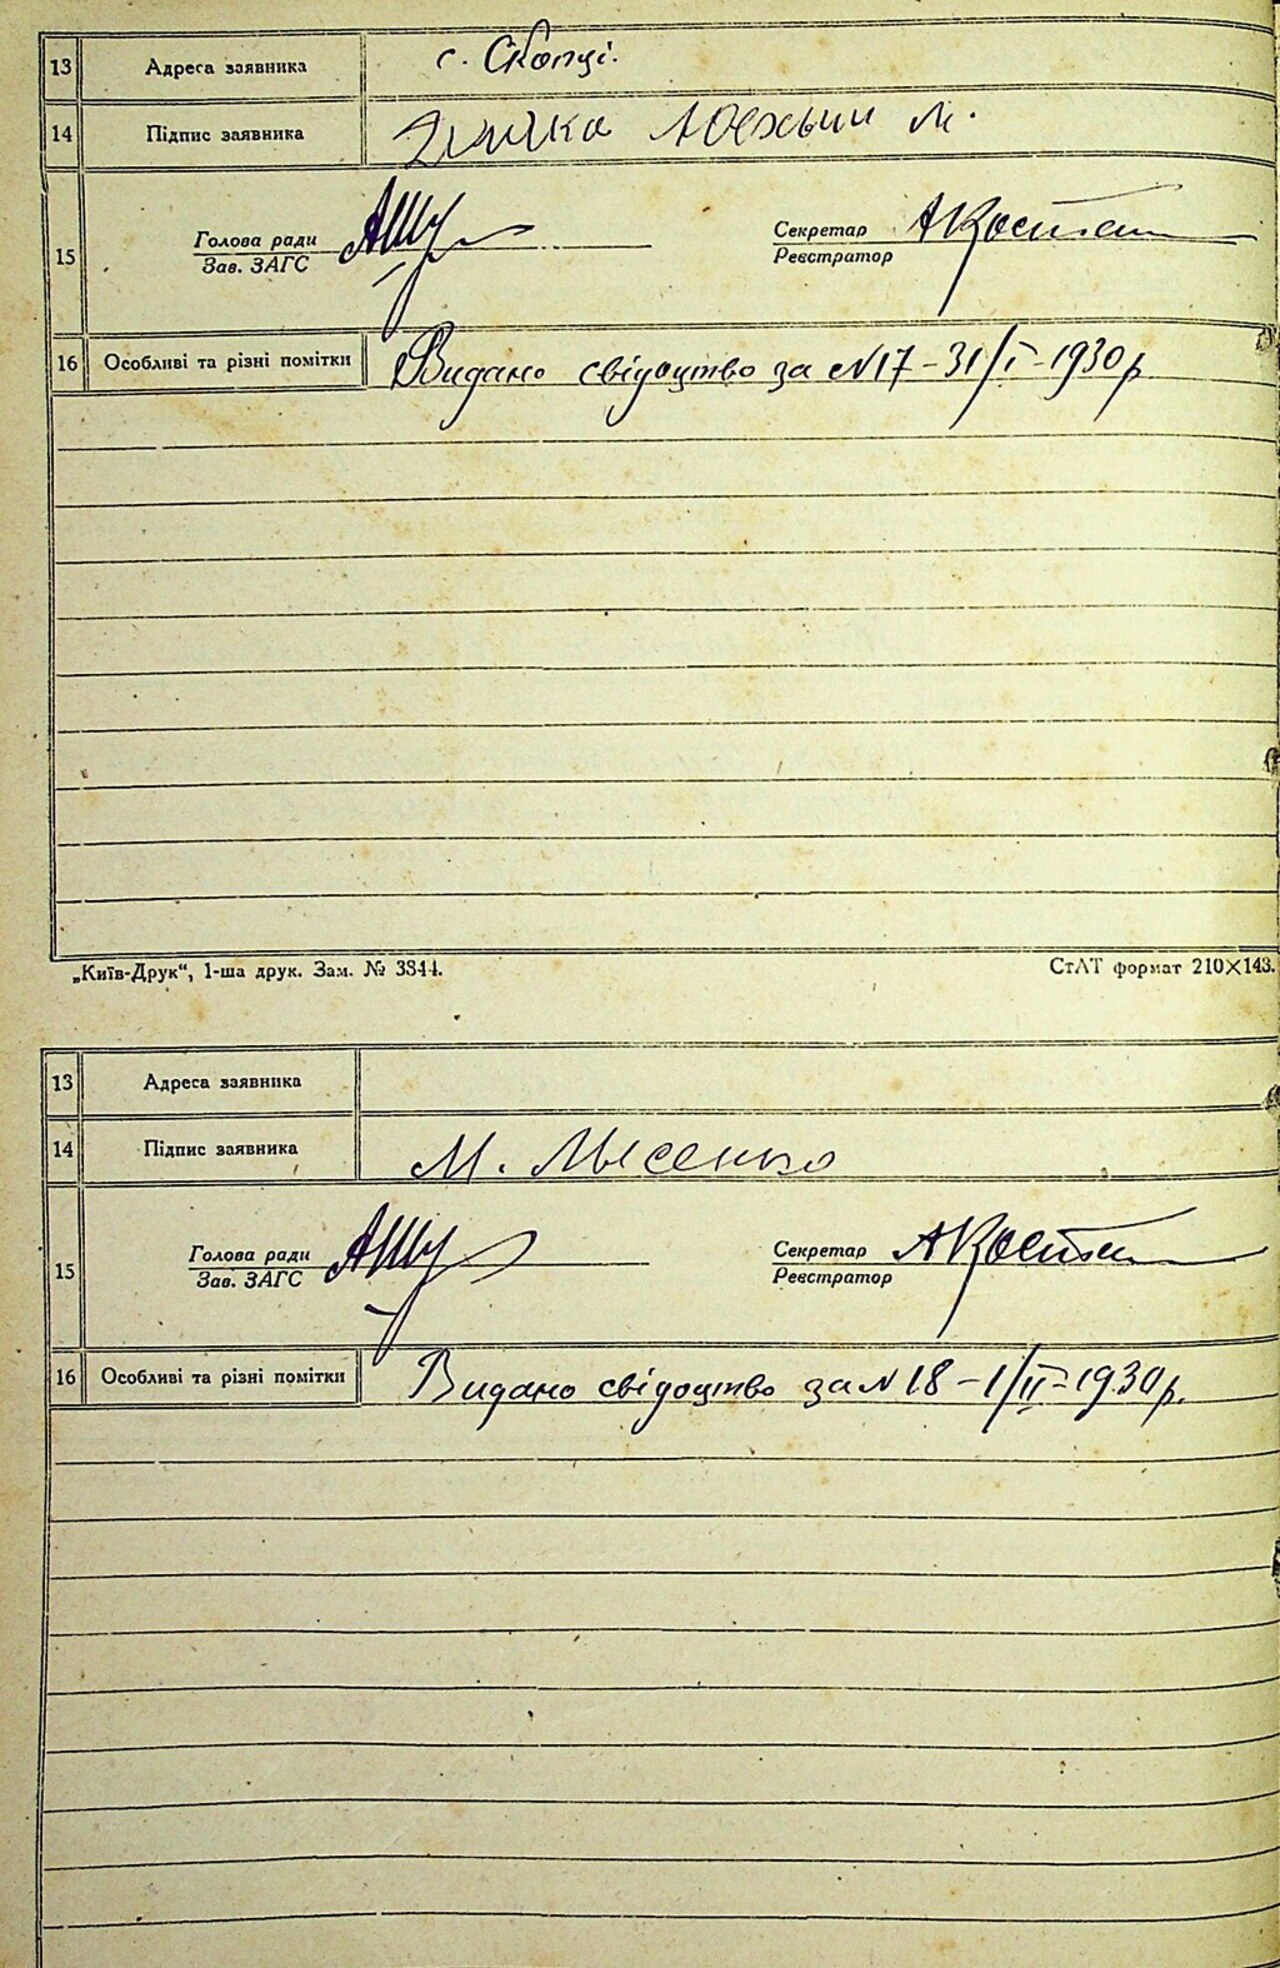 13 Адреса заявника с. Скопці.
14 Підпис заявника Юхим М.
15
Голова ради
Зав. ЗАГС
Секретар
Реєстратор
16 Особливі та різні помітки Видано свідоцтво за №17 – 31/I – 1930 р
„Київ-Друк“, 1-ша друк. Зам. № 3844.
СтАТ формат 210×143.
13 Адреса заявника
14 Підпис заявника М. Лысенко
15
Голова ради
Зав. ЗАГС
Секретар
Реєстратор
16 Особливі та різні помітки Видано свідоцтво за № 18 – 1/II – 1930 р.